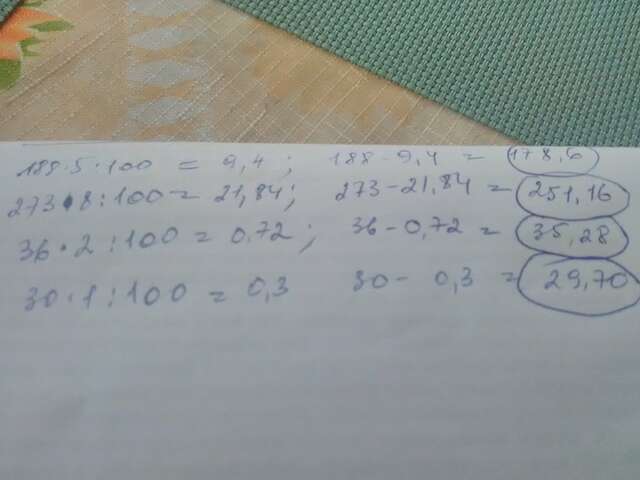 188·5·100 = 9,4; 188-9,4 = 178,6
273·8:100 = 21,84; 273-21,84 = 251,16
36·2:100 = 0,72; 36-0,72 = 35,28
30·1:100 = 0,3 30- 0,3 = 29,70